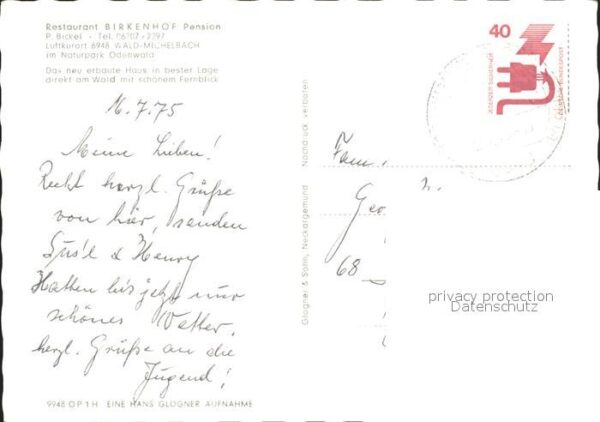 Restaurant BIRKENHOF Pension
P. Bickel · Tel. 06207-2297
Luftkurort 6948 WALD-MICHELBACH
im Naturpark Odenwald
Das neu erbaute Haus in bester Lage
direkt am Wald mit schönem Fernblick
16.7.75
Meine Lieben!
Recht herzl. Grüße
von hier, senden
Sus'l & Henry
Hatten bis jetzt nur
schönes Wetter.
herzl. Grüße an die
Jugend!
9948 OP 1 H EINE HANS GLOGNER AUFNAHME
Glogner & Sohn, Neckargemünd
Nachdruck verboten
40
JEDERZEIT SICHERHEIT
DEUTSCHE BUNDESPOST
Fam.
Geo
68
privacy protection
Datenschutz